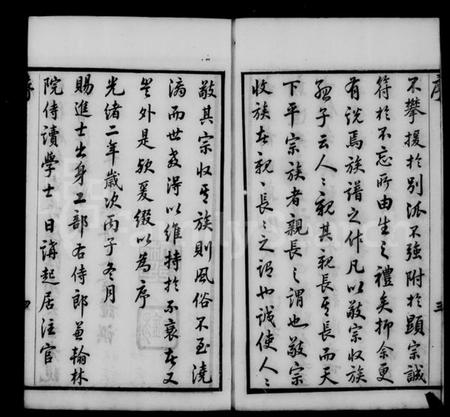 序
三
不攀援於別派不強附於顯宗誠
符於不忘所由生之禮矣抑余更
有說焉族譜之作凡以敬宗收族
孟子云人人親其親長其長而天
下平宗族者親長之謂也敬宗
收族者親親長長之謂也誠使人人
敬其宗收其族則風俗不至澆
漓而世教得以維持於不衰者又
豈外是歟爰綴以為序
光緒二年歲次丙子冬月
賜進士出身工部右侍郎兼翰林
院侍讀學士日講起居注官